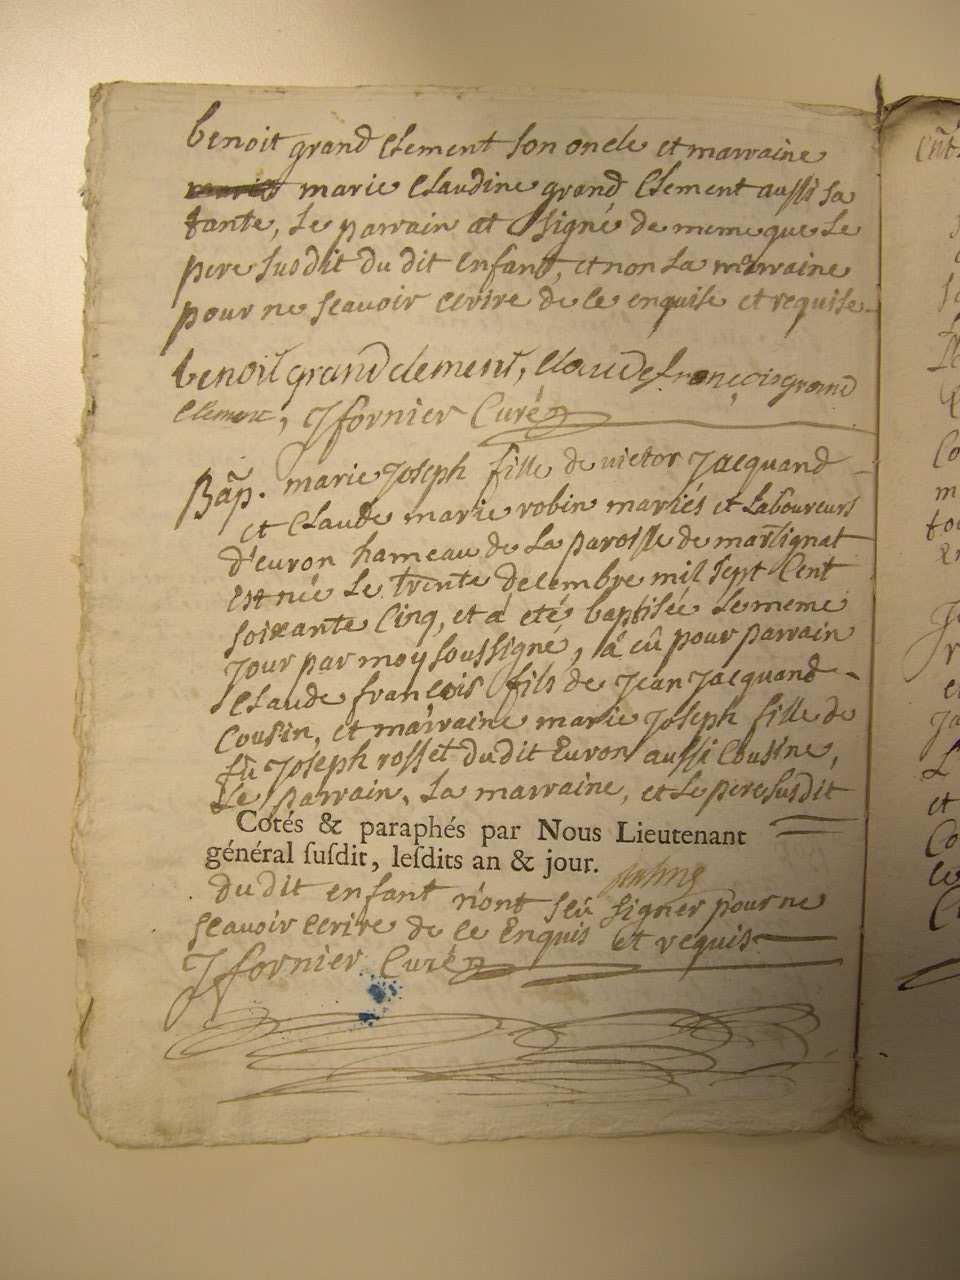 benoit grand Clement son oncle et marraine
marie Claudine grand Clement aussi sa
tante, le parrain at signé de meme que le
pere susdit du dit enfant, et non la marraine
pour ne scavoir ecrire de ce enquise et requise
benoit grand clement, claude françois grand
clement, J fornier Curé
Bap. marie Joseph fille de victor Jacquand
et Claude marie robin mariés et Laboureurs
d'euron hameau de la paroisse de martignat
est née le trente decembre mil sept Cent
soixante Cinq, et a eté baptisée le meme
jour par moy soussigné, a eû pour parrain
Claude françois fils de Jean Jacquand
Cousin, et marraine marie Joseph fille de
fû Joseph rosset dudit Euron aussi Cousine,
Le parrain, La marraine, et Le pere susdit
Cotés & paraphés par Nous Lieutenant
général ſuſdit, leſdits an & jour.
du dit enfant n'ont sçû signer pour ne
scavoir ecrire de ce Enquis et requis
J fornier Curé